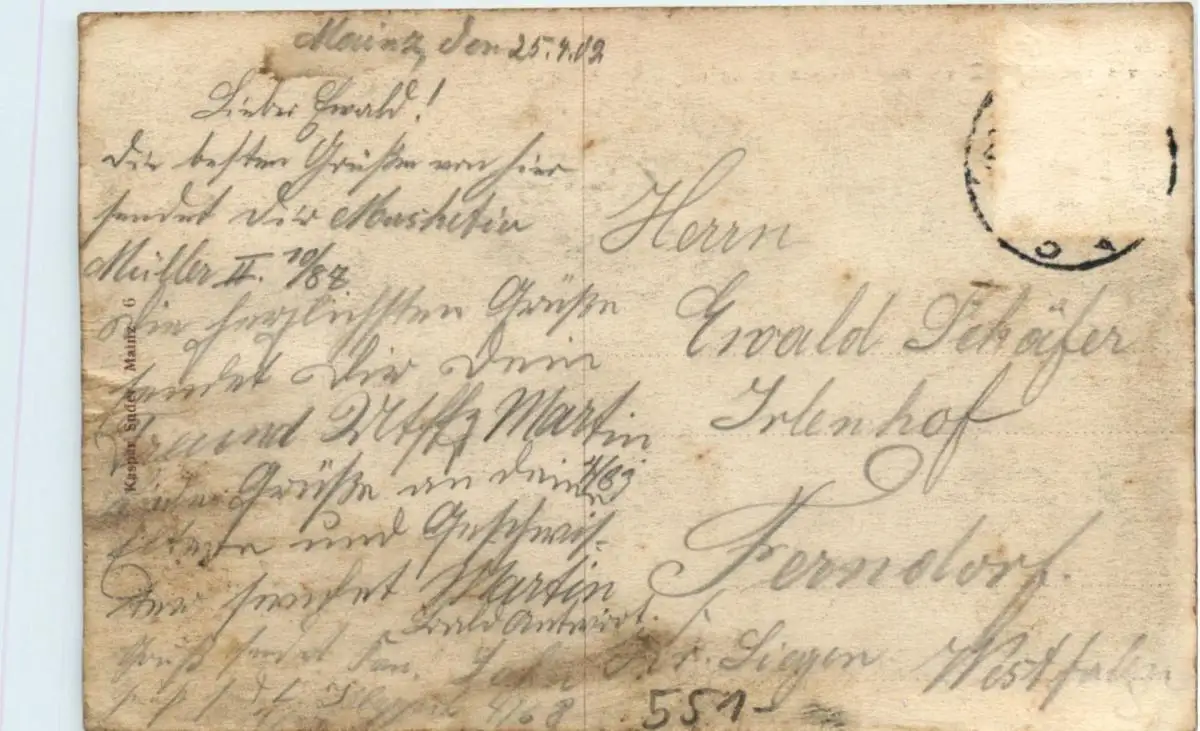 Mainz, den 25.4.12
Lieber Ewald!
Die besten Grüße von hier
sendet Dir Musketier
Müller II. 10/88
Die herzlichsten Grüße
sendet Dir Dein
Freund Martin
Grüße an deine
Eltern und Geschwis-
ter sendet Martin
Bald Antwort.
Gruß sendet
Kaspar Suder Mainz 6
Herrn
Ewald Schäfer
Irlenhof
Ferndorf.
Kr. Siegen Westfalen
551-